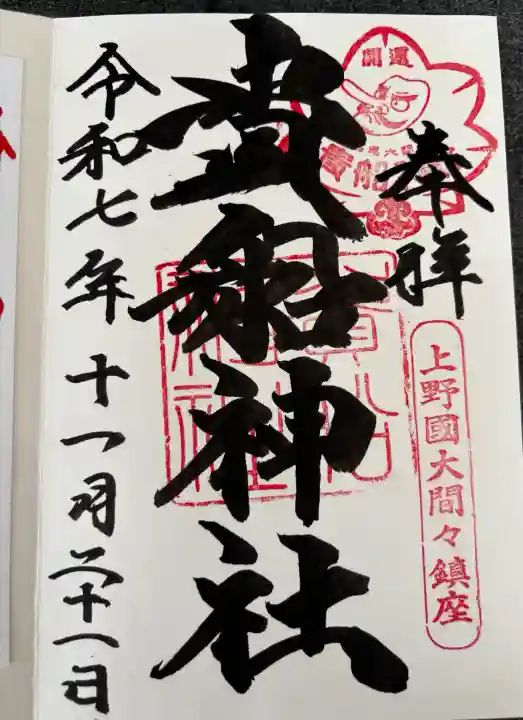 奉拝
開運
貴船
上野國大間々鎮座
貴船神社
令和七年十一月二十一日